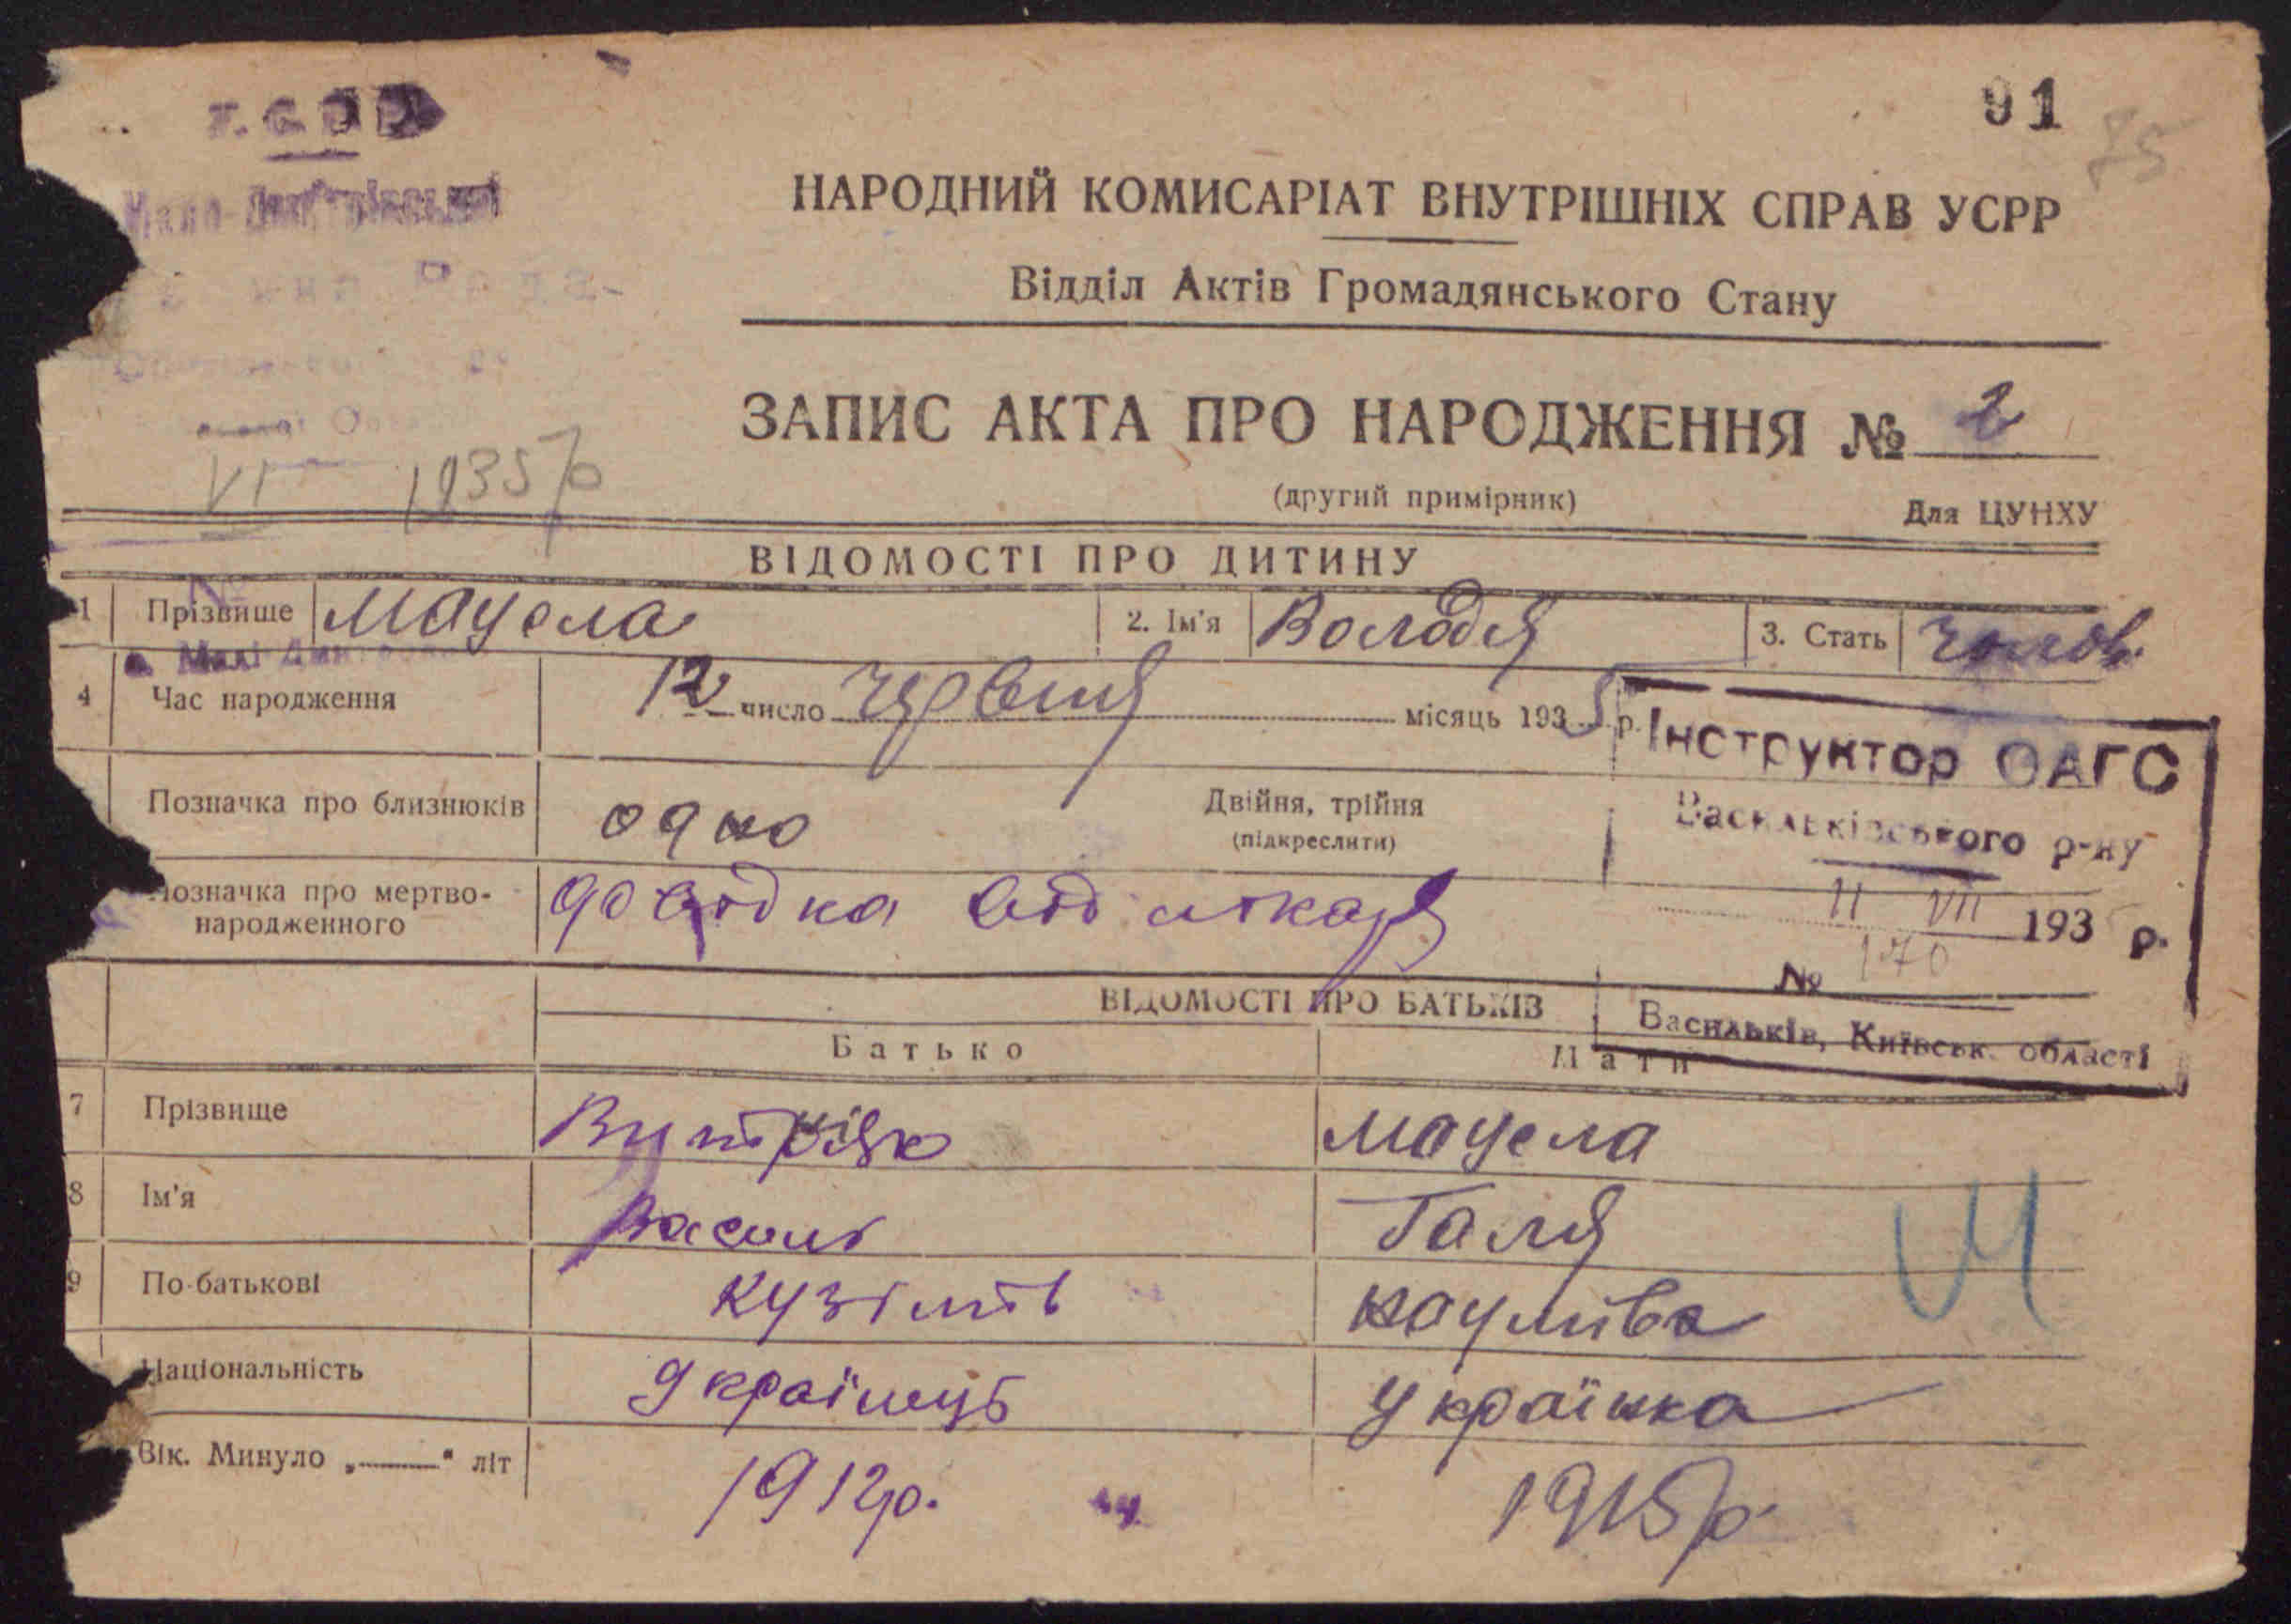 У.С.Р.Р.
91
75
Мало-Дмитрівська
Рада
НАРОДНИЙ КОМИСАРІАТ ВНУТРІШНІХ СПРАВ УСРР
Відділ Актів Громадянського Стану
ЗАПИС АКТА ПРО НАРОДЖЕННЯ № 2
VI 1935 р
(другий примірник)
Для ЦУНХУ
ВІДОМОСТІ ПРО ДИТИНУ
1 Прізвище Мацела 2. Ім'я Володя 3. Стать чолов.
с. Малі Дмитр
4 Час народження 12 число червня місяць 1935 р.
Інструктор ОАГС
Позначка про близнюків одно Двійня, трійня
(підкреслити)
Васильківського р-ну
Позначка про мертво-
народженного
довідка від лікаря
11 VII 193 р.
№ 170
ВІДОМОСТІ ПРО БАТЬКІВ
Васильків, Київськ. області
Батько Мати
7 Прізвище Мацела
8 Ім'я Василь Галя
9 По-батькові
Національність Українець Українка
Вік. Минуло „——" літ 1912р. 1915р.